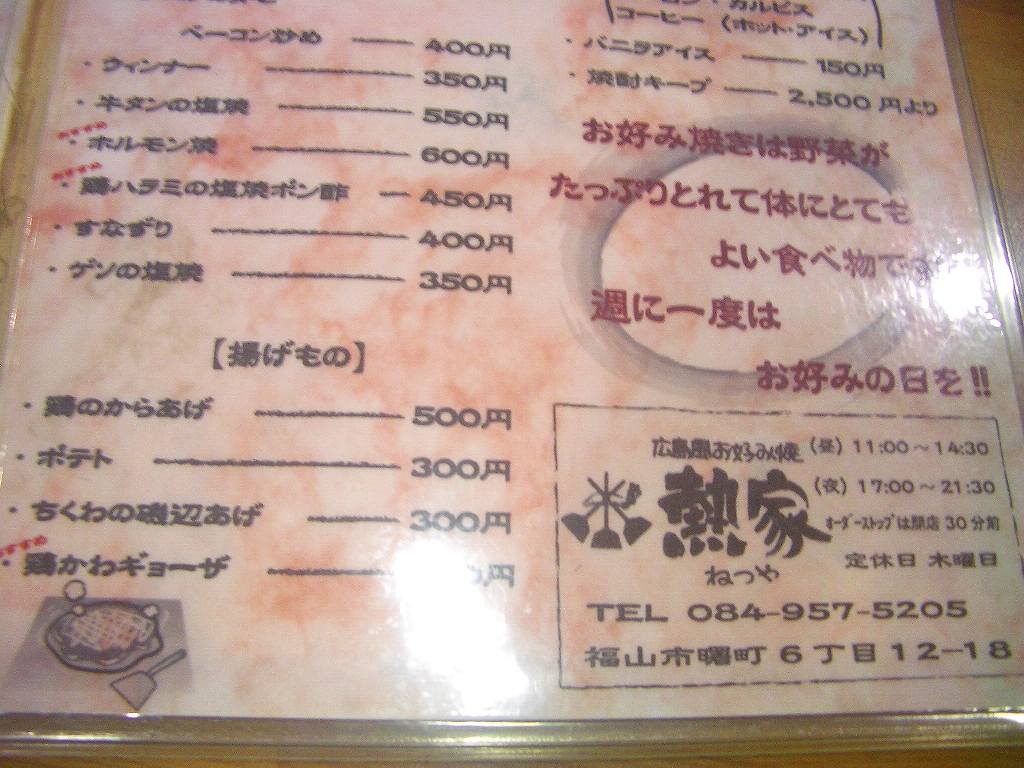 ベーコン炒め 400円
・ウィンナー 350円
・牛タンの塩焼 550円
おすすめ
・ホルモン焼 600円
おすすめ
・鶏ハラミの塩焼ポン酢 450円
・すなずり 400円
・ゲソの塩焼 350円
【揚げもの】
・鶏のからあげ 500円
・ポテト 300円
・ちくわの磯辺あげ 300円
おすすめ
・鶏かわギョーザ 円
カルピス
コーヒー (ホット・アイス)
・バニラアイス 150円
・焼酎キープ 2,500円より
お好み焼きは野菜が
たっぷりとれて体にとても
よい食べ物で
週に一度は
お好みの日を!!
広島風お好み焼 (昼) 11:00～14:30
熱家 (夜) 17:00～21:30
オーダーストップは閉店30分前
ねつや 定休日 木曜日
TEL 084-957-5205
福山市曙町6丁目12-18